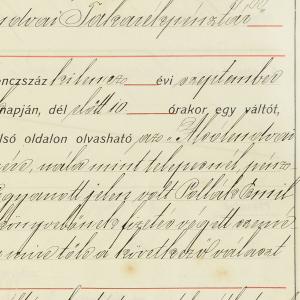 ndvai Takarékpénztár
enczszáz kilencz évi szeptember
napján, dél előtt 10 órakor egy váltót,
lső oldalon olvasható az Alsólendvai
nála mint telepesnél pénz
Ugyanott jelen volt Pollák Emil
könyvelőnek fizetés végett
mire tőle a következő választ